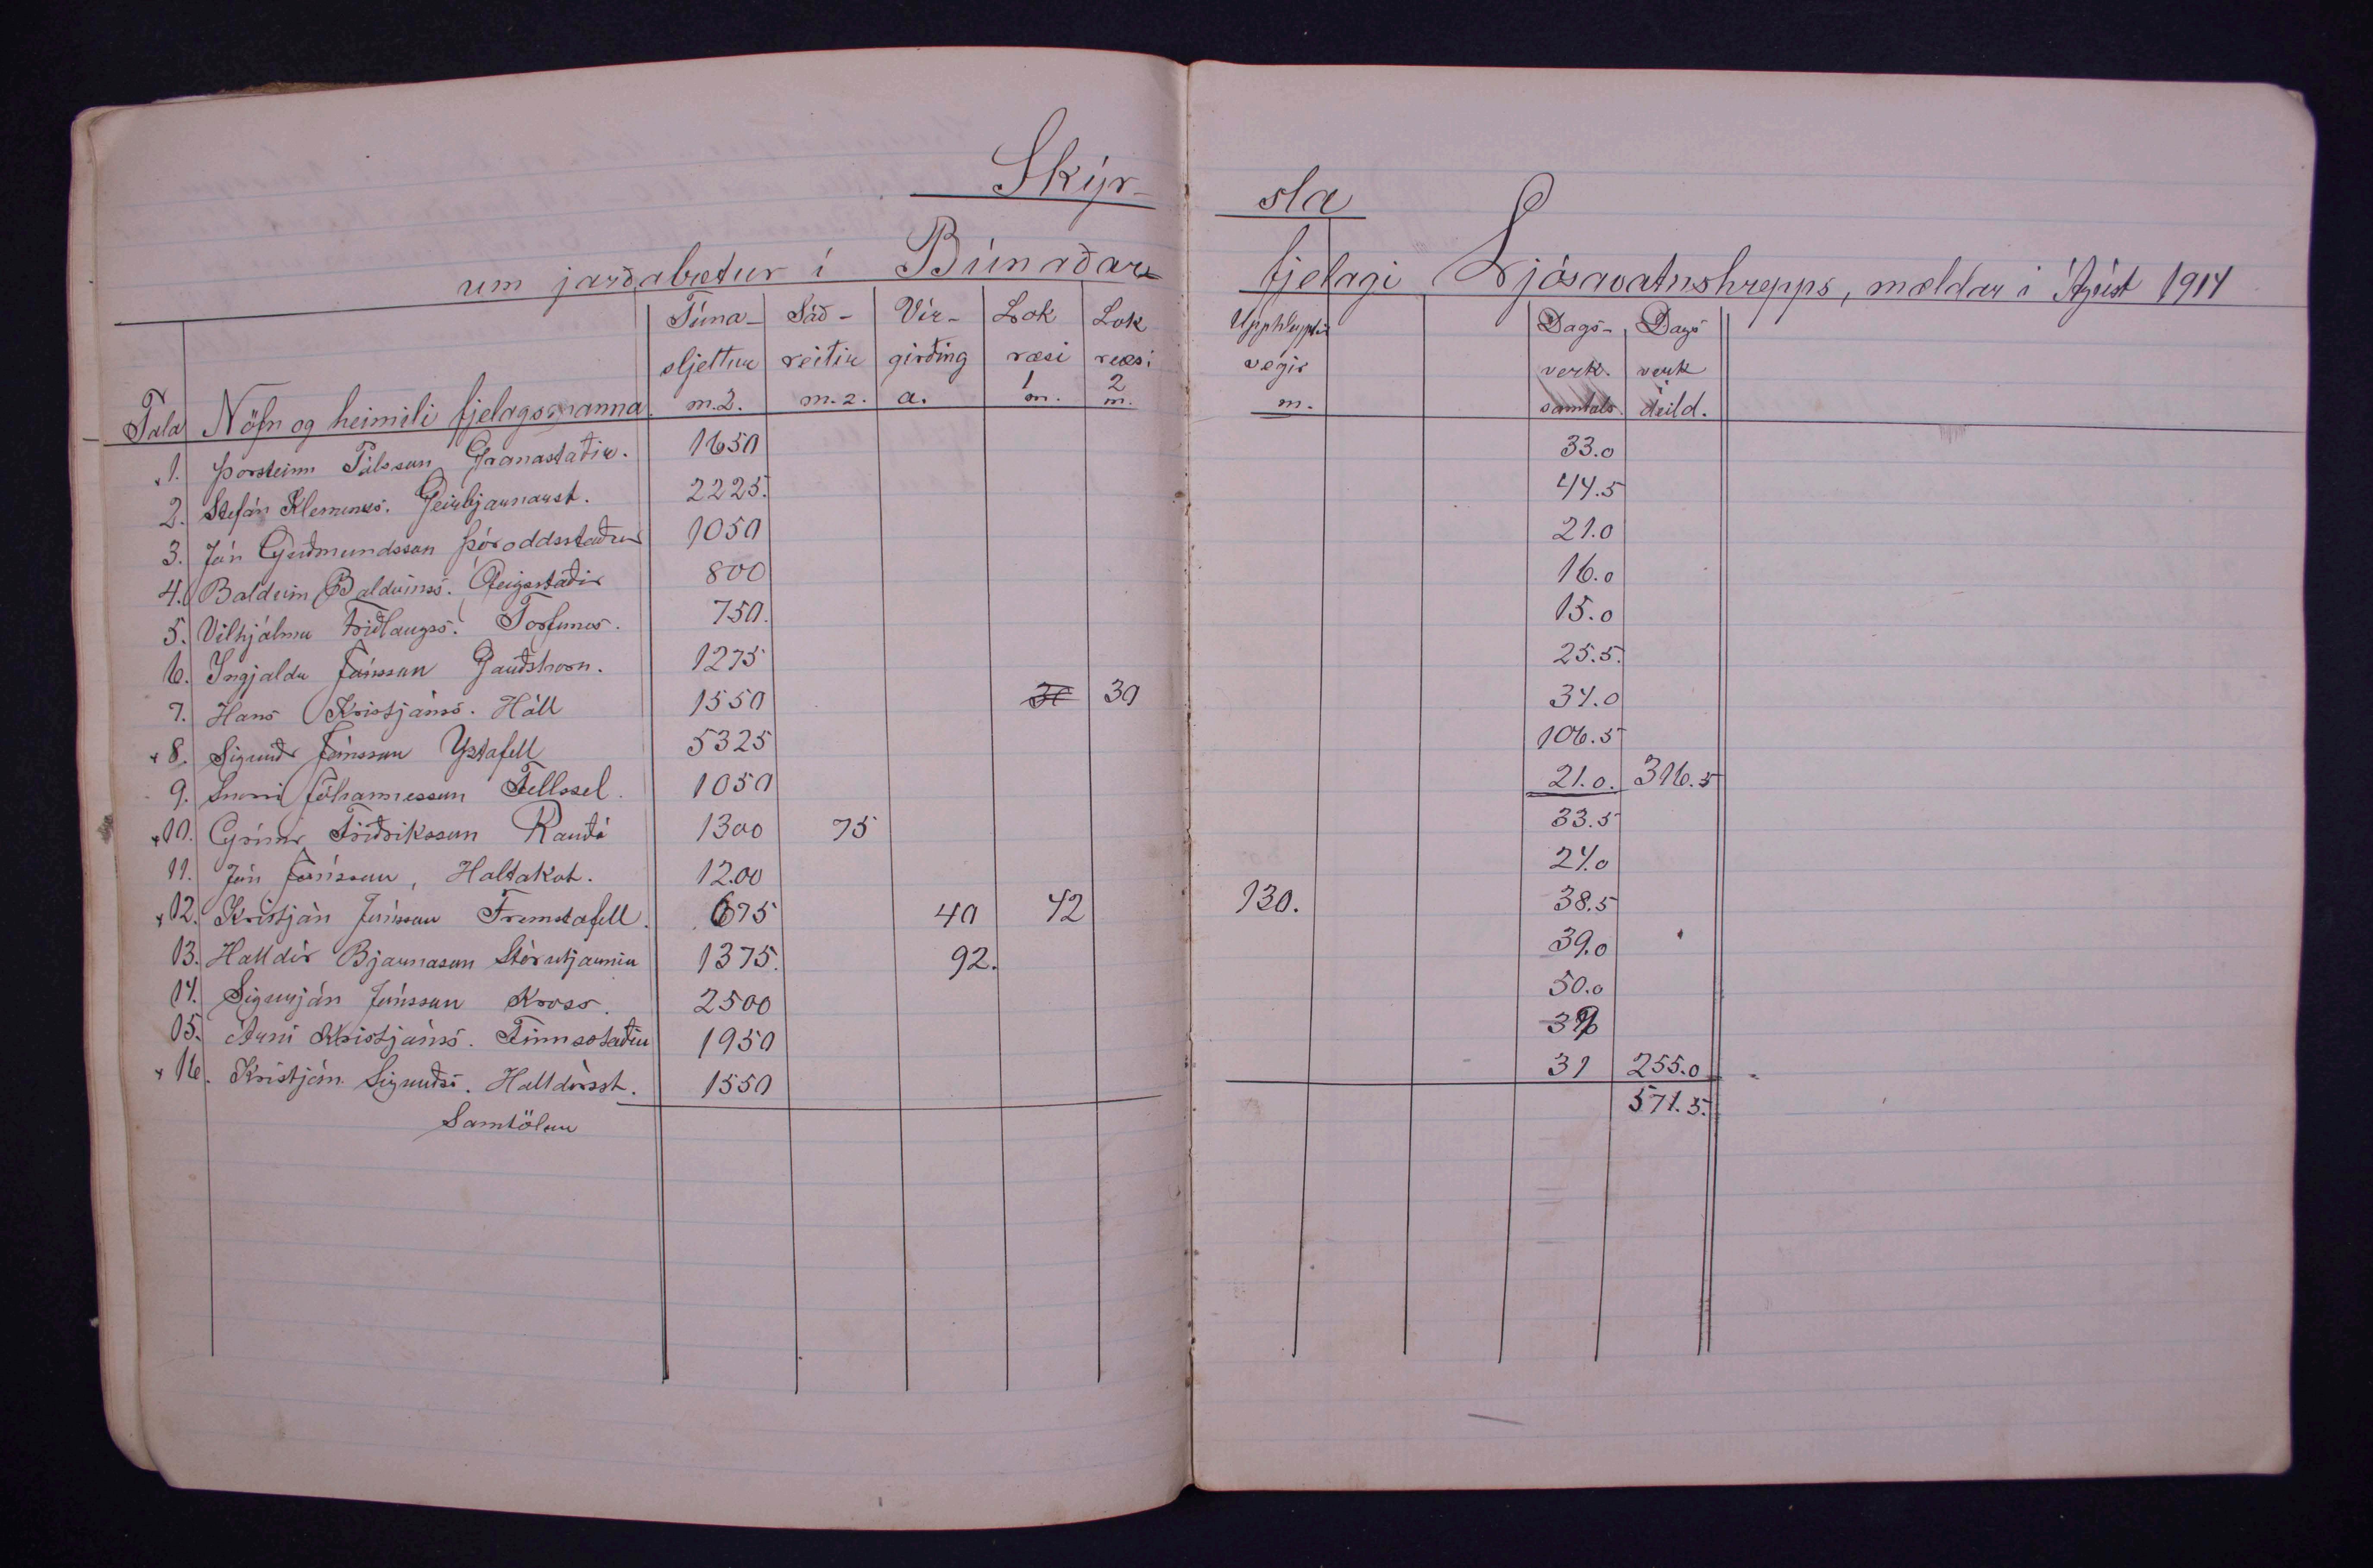 Skýrsla
um jarðabætur í Búnaðarfjelagi Ljósavatnshrepps, mældar í Ágúst 1914
Tala Nöfn og heimili fjelagsmanna. Túnasljettur m.2. Sáðreitir m.2. Vírgirðing a. Lokræsi 1 m. Lokræsi 2 m. Upphleyptir vegir m. Dagsverk samtals. Dagsverk deild.
x1. Þorsteinn Pálsson Granastaðir. 1650 33.0
2. Stefán Klemenss. Geirbjarnarst. 2225. 44.5
3. Jón Guðmundsson Þóroddsstaður 1050 21.0
4. Baldvin Baldvinss. Ófeigsstaðir 800 16.0
5. Vilhjálmur Friðlaugss. Torfunes. 750. 15.0
6. Ingjaldur Jónsson Gauðshorn. 1275 25.5.
7. Hans Kristjánss. Hóll 1550 30 30 34.0
x8. Sigurður Jónsson Ystafell 5325 106.5
9. Snorri Jóhannesson Fellssel. 1050 21.0. 316.5
x10. Grímur Friðriksson Rauðá 1300 75 33.5
11. Jón Jónsson, Holtakot. 12.00 24.0
x12. Kristján Jónsson Fremstafell. 675 40 42 130. 38.5
13. Halldór Bjarnason Stórutjarnir 1375. 92. 39.0
14. Sigurjón Jónsson Kross. 2500 50.0
15. Árni Kristjánss. Finnsstaðir 1950 39
x16. Kristján Sigurðss. Halldórsst. 1550 31 255.0
Samtölur 571.5.